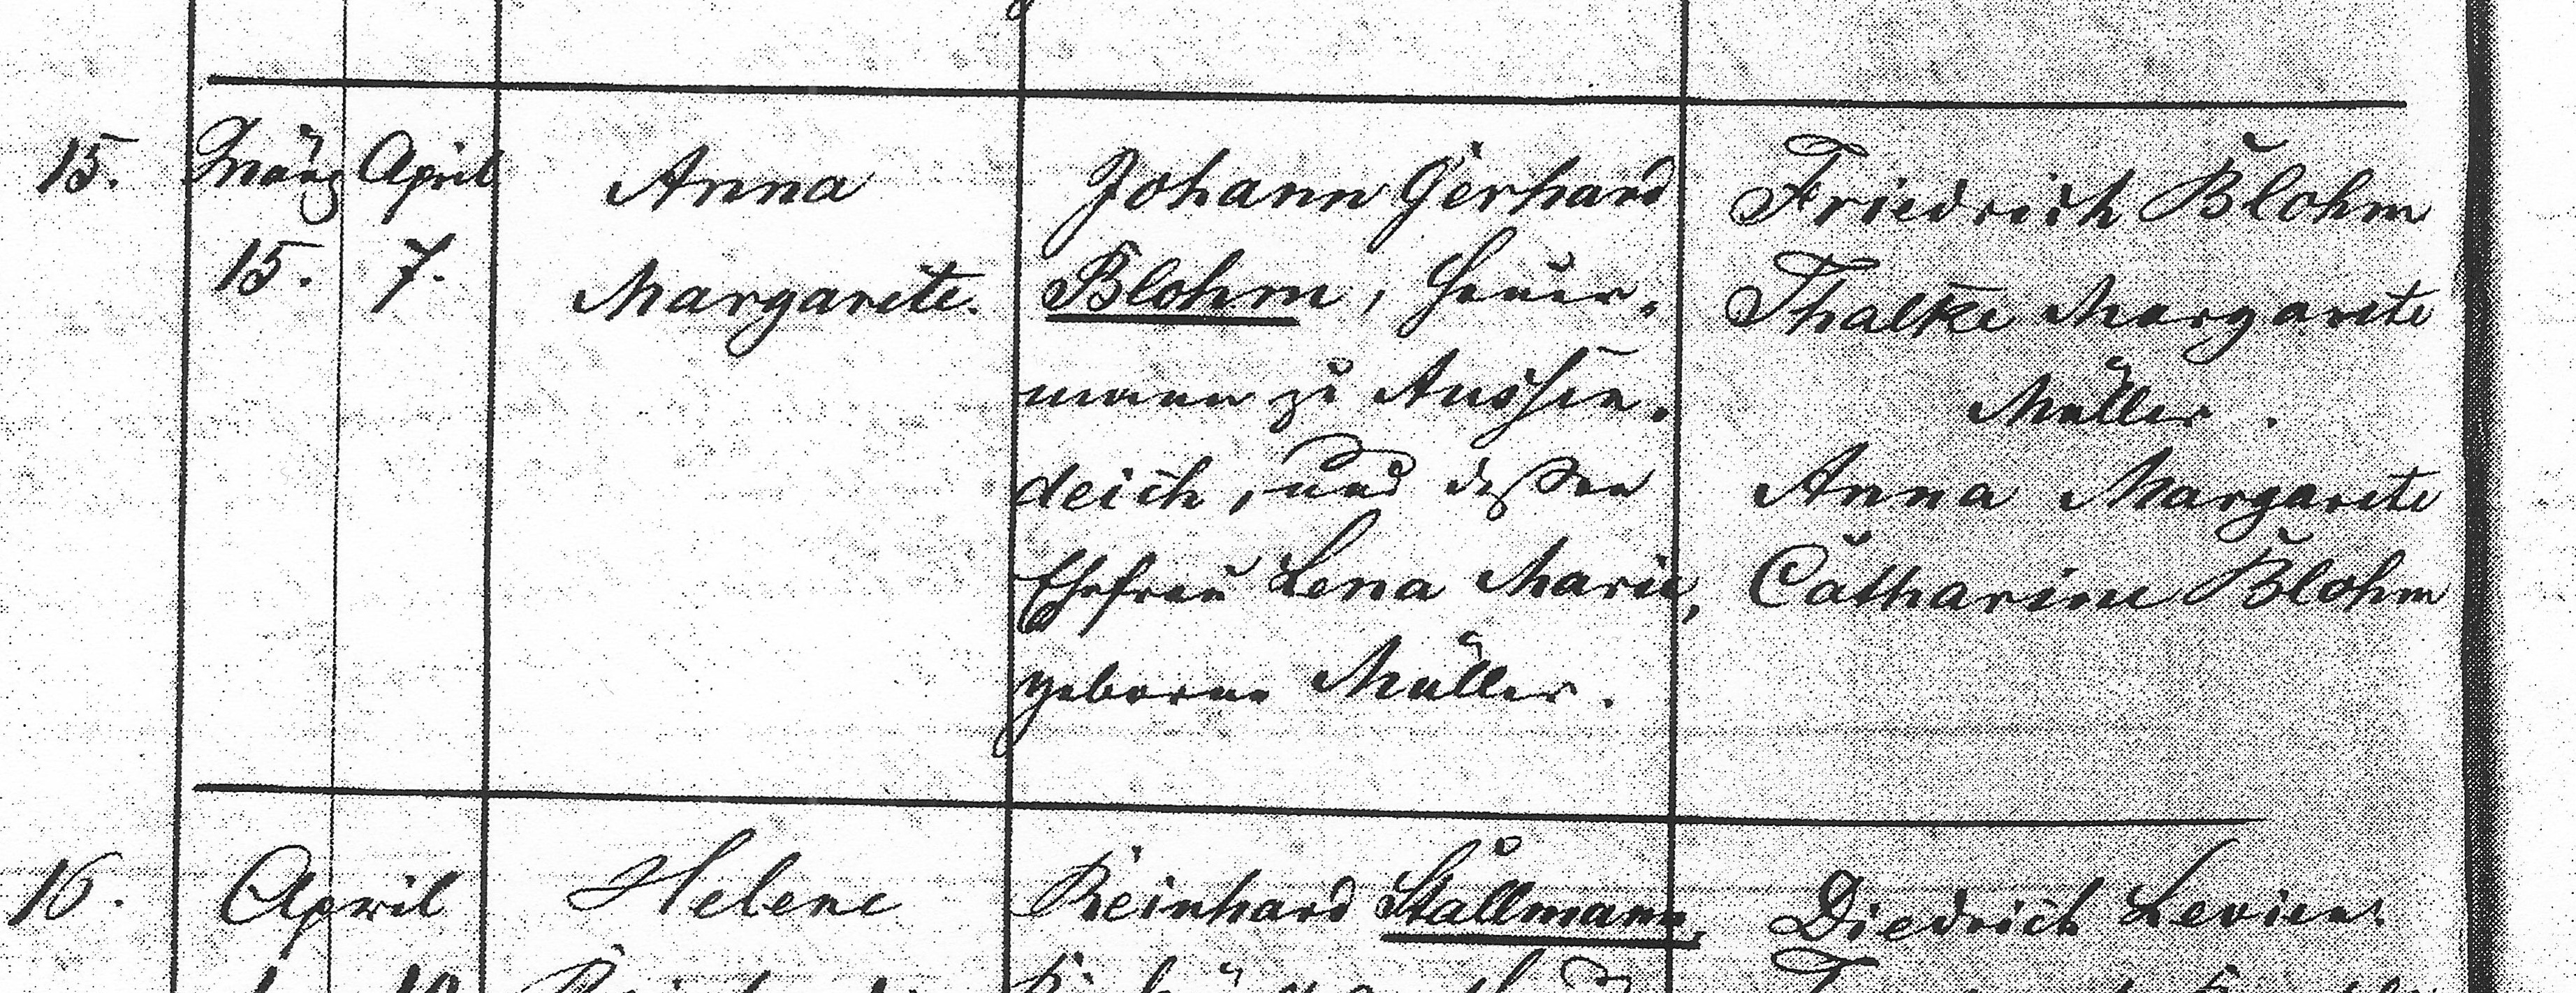 15. März April Anna Johann Gerhard Friedrich Blohm
15. 7. Margarete. Blohm, Heuer- Thalke Margarete
mann zu Aussen- Müller.
deich, und dessen Anna Margarete
Ehefrau Lena Marie, Catharine Blohm
geborne Müller.
16. April Helene Reinhard Stallmann, Diedrich Levien